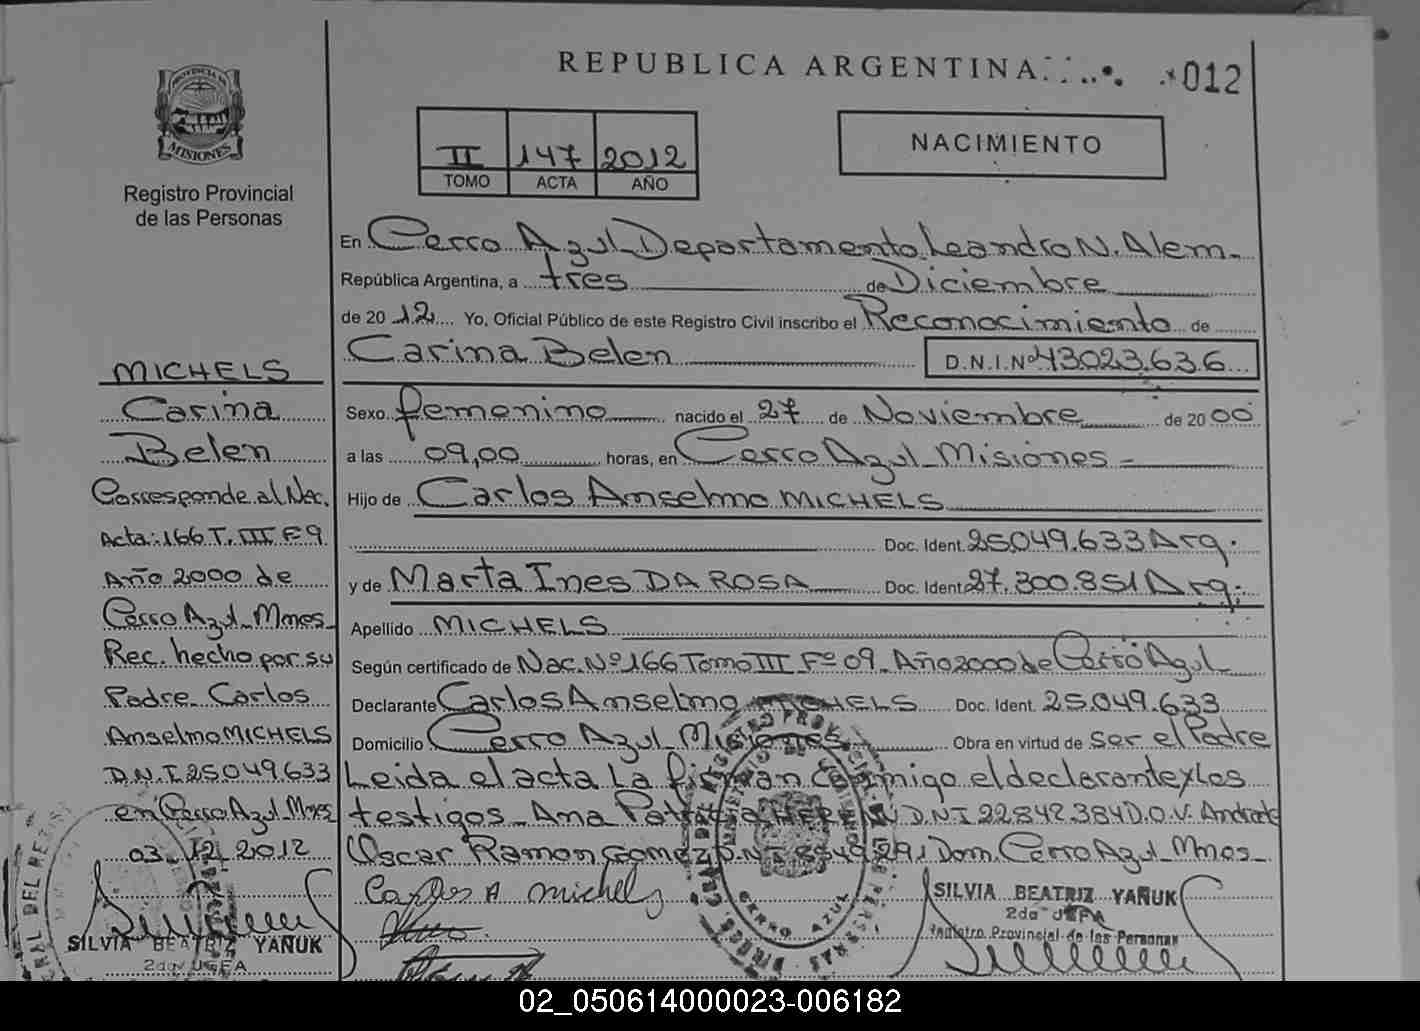 REPUBLICA ARGENTINA
012
PROVINCIA DE
MISIONES
Registro Provincial
de las Personas
II 147 2012
TOMO ACTA AÑO
NACIMIENTO
En Cerro Azul Departamento Leandro N. Alem.
República Argentina, a tres de Diciembre
de 20 12 Yo, Oficial Público de este Registro Civil inscribo el Reconocimiento de
Carina Belen D.N.I.Nº 43.023.636
Sexo femenino nacido el 27 de Noviembre de 20 00
a las 09,00 horas, en Cerro Azul - Misiones -
Hijo de Carlos Anselmo MICHELS
Doc. Ident. 25.049.633 Arg.
y de Marta Ines DA ROSA Doc. Ident. 27.300.851 Arg.
Apellido MICHELS
Según certificado de Nac. Nº 166 Tomo III Fº 09 - Año 2000 de Cerro Azul
Declarante Carlos Anselmo MICHELS Doc. Ident. 25.049.633
Domicilio Cerro Azul - Misiones Obra en virtud de ser el Padre
Leida el acta La firman conmigo el declarante y Los
testigos - Ana D.N.I 22.842.384 D.O.V. Andrade
Oscar Ramon Gomez Dom. Cerro Azul - Mnes -
Carlos A michels
SILVIA BEATRIZ YAÑUK
2da JEFA
Registro Provincial de las Personas
MICHELS
Carina
Belen
Corresponde al Nac.
Acta: 166 T. III F 9
Año 2000 de
Cerro Azul - Mnes -
Rec. hecho por su
Padre Carlos
Anselmo MICHELS
D.N.I 25.049.633
en Cerro Azul Mnes
03-12-2012
SILVIA BEATRIZ YAÑUK
2da JEFA
CERRO AZUL
02_050614000023-006182